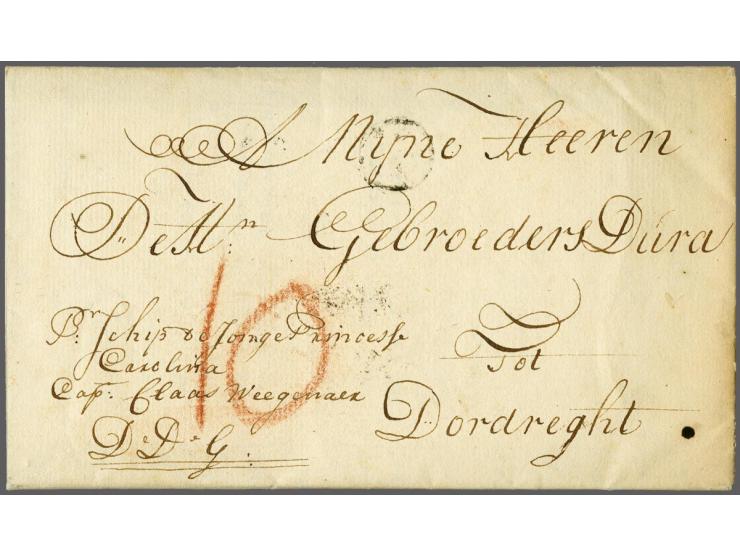 A Mÿne Heeren
De Hrn Gebroeders Dura
Pr. Schip de Jonge Princesse
Carolina
Cap: Claas Weegenaer
D. D. G.
Tot
Dordreght
10